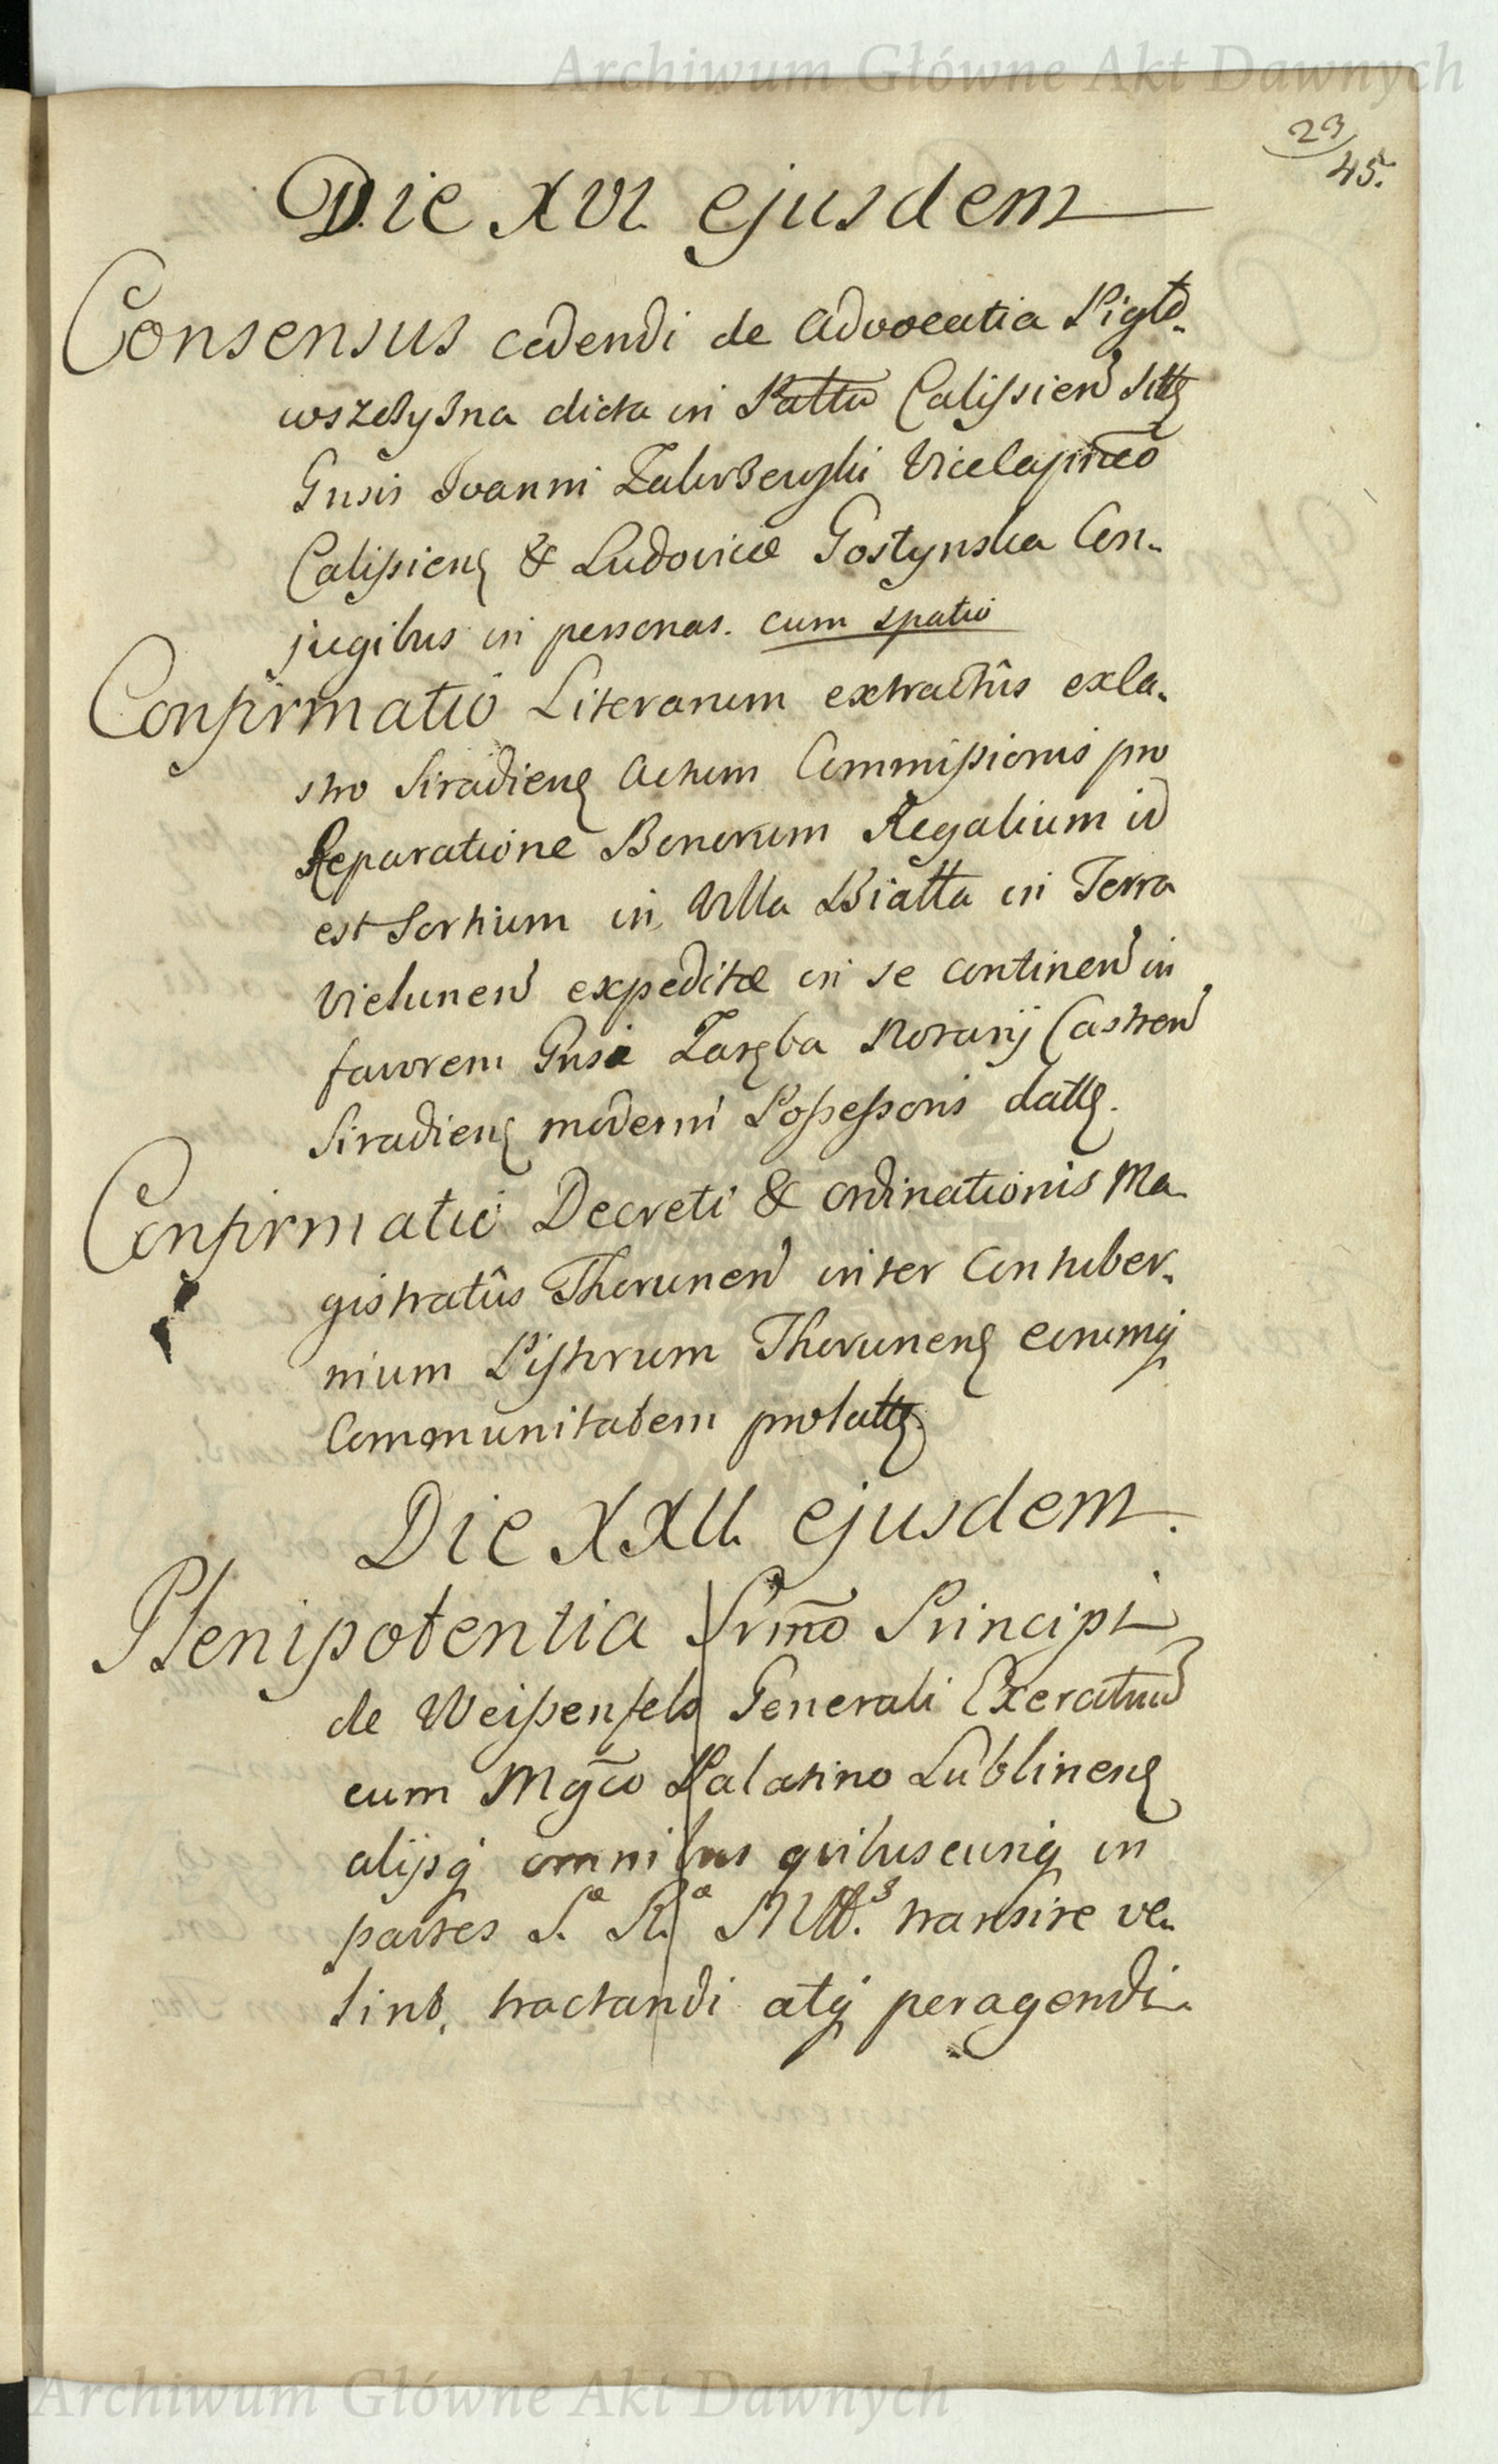 Archiwum Główne Akt Dawnych
23
45.
Die XVI. ejusdem
Consensus cedendi de Advocatia Pigło-
wszczyzna dicta in Pallu Calissien sitt
Gnsis Joanni Vicecapneo
Calissien & Ludovicæ Gostynska Con-
jugibus in personas. cum spatio
Confirmatio Literarum extractûs exca-
stro Siradien Actum Commissionis pro
Reparatione Bonorum Regalium id
est Sortium in Villa Białła in Terra
Vielunen expeditæ in se continen in
favorem Gnsi Zaręba Notarij Castren
Siradien moderni Possessoris datt.
Confirmatio Decreti & ordinationis Ma-
gistratûs Thorunen inter Contuber-
nium Pistorum Thorunen eorumq
Communitatem prolatt.
Die XXII. ejusdem.
Plenipotentia Srmo Principi
de Weissenfels Generali Exercituu
cum Mgco Palatino Lublinen
alijsq omnibus quibuscunq in
partes S.æ R.æ Mtt.s transire ve-
lint, tractandi atq peragendi.
Archiwum Główne Akt Dawnych